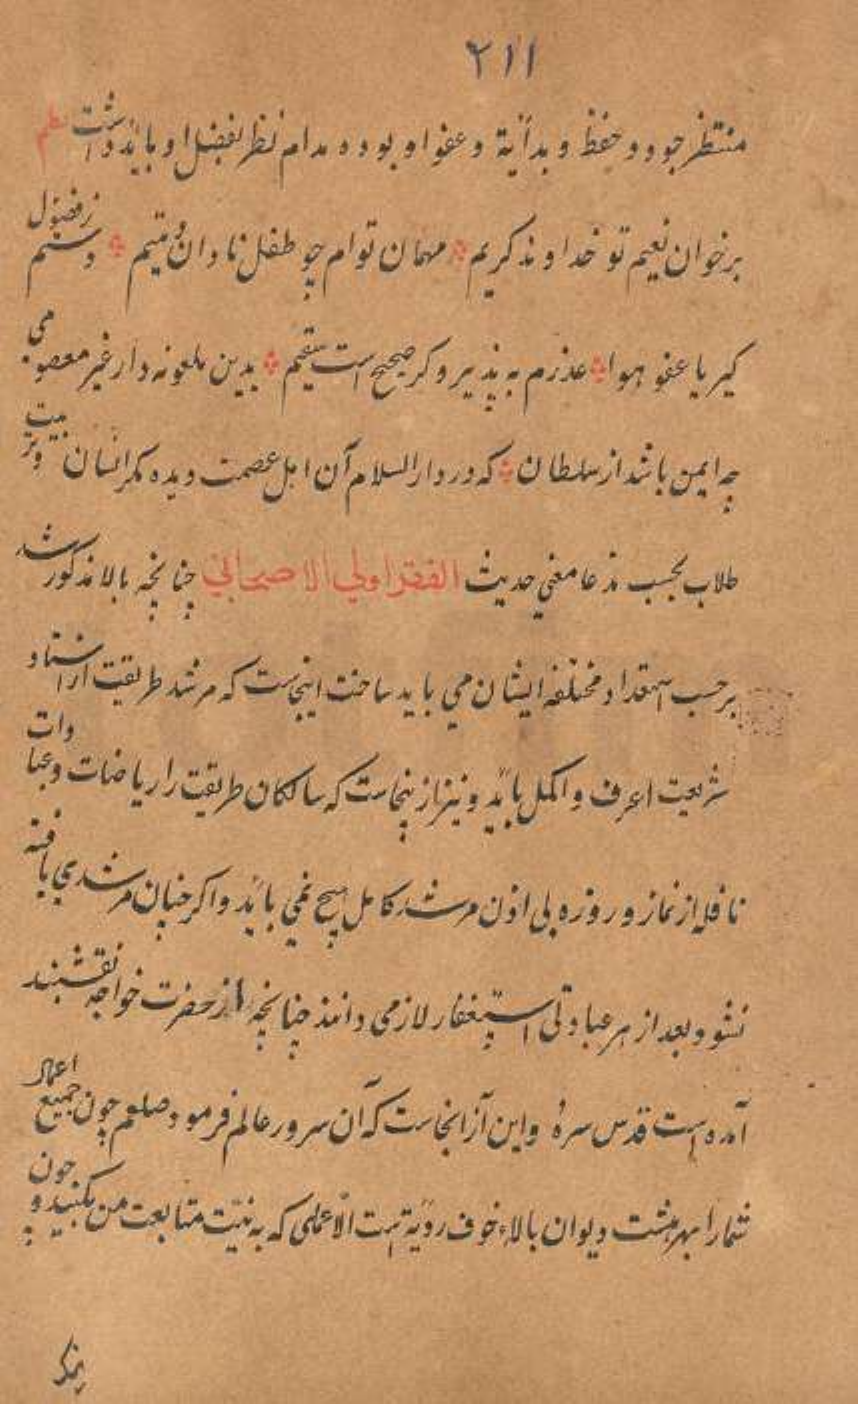 ۲۱۱
منتظر جود و حفظ و بدأیة و عفو او بوده مدام نظر بفضل او باید داشت نظم
بر خوان نعیم تو خداوند کریم مهمان توام چو طفل نادان و یتیم دستم ز فضول
گیر یا عفو هوا عذرم به پذیر و کر صحیح است سقیم بدین ملعونه دار غیر معصومی
چه ایمن باشد از سلطان که در دار السلام آن اهل عصمت دیده مکر انسان بیت و نیز
طلاب بحسب مدعا معنی حدیث الفقر اولی الاصحابی چنانچه بالا مذکور شد
بر حسب استعداد مختلفه ایشان می باید ساخت اینجاست که مرشد طریقت از استاد
شریعت اعرف و اکمل باید و نیز ازینجاست که سالکان طریقت را ریاضات و عبادات
نافله از نماز و روزه بی اذن مرشد کامل هیچ نمی باید و اکر چنان مرشدی یافته
نشو و بعد از هر عبادتی استغفار لازمی دانند چنانچه از حضرت خواجه نقشبند
آمده است قدس سره و این آزانجاست که آن سرور عالم فرمود صلعم چون جمیع اعمال
شمارا بهر هشت دیوان بالاء خوف ردیة است الا عملی که به نیت متابعت من بکنید و چون